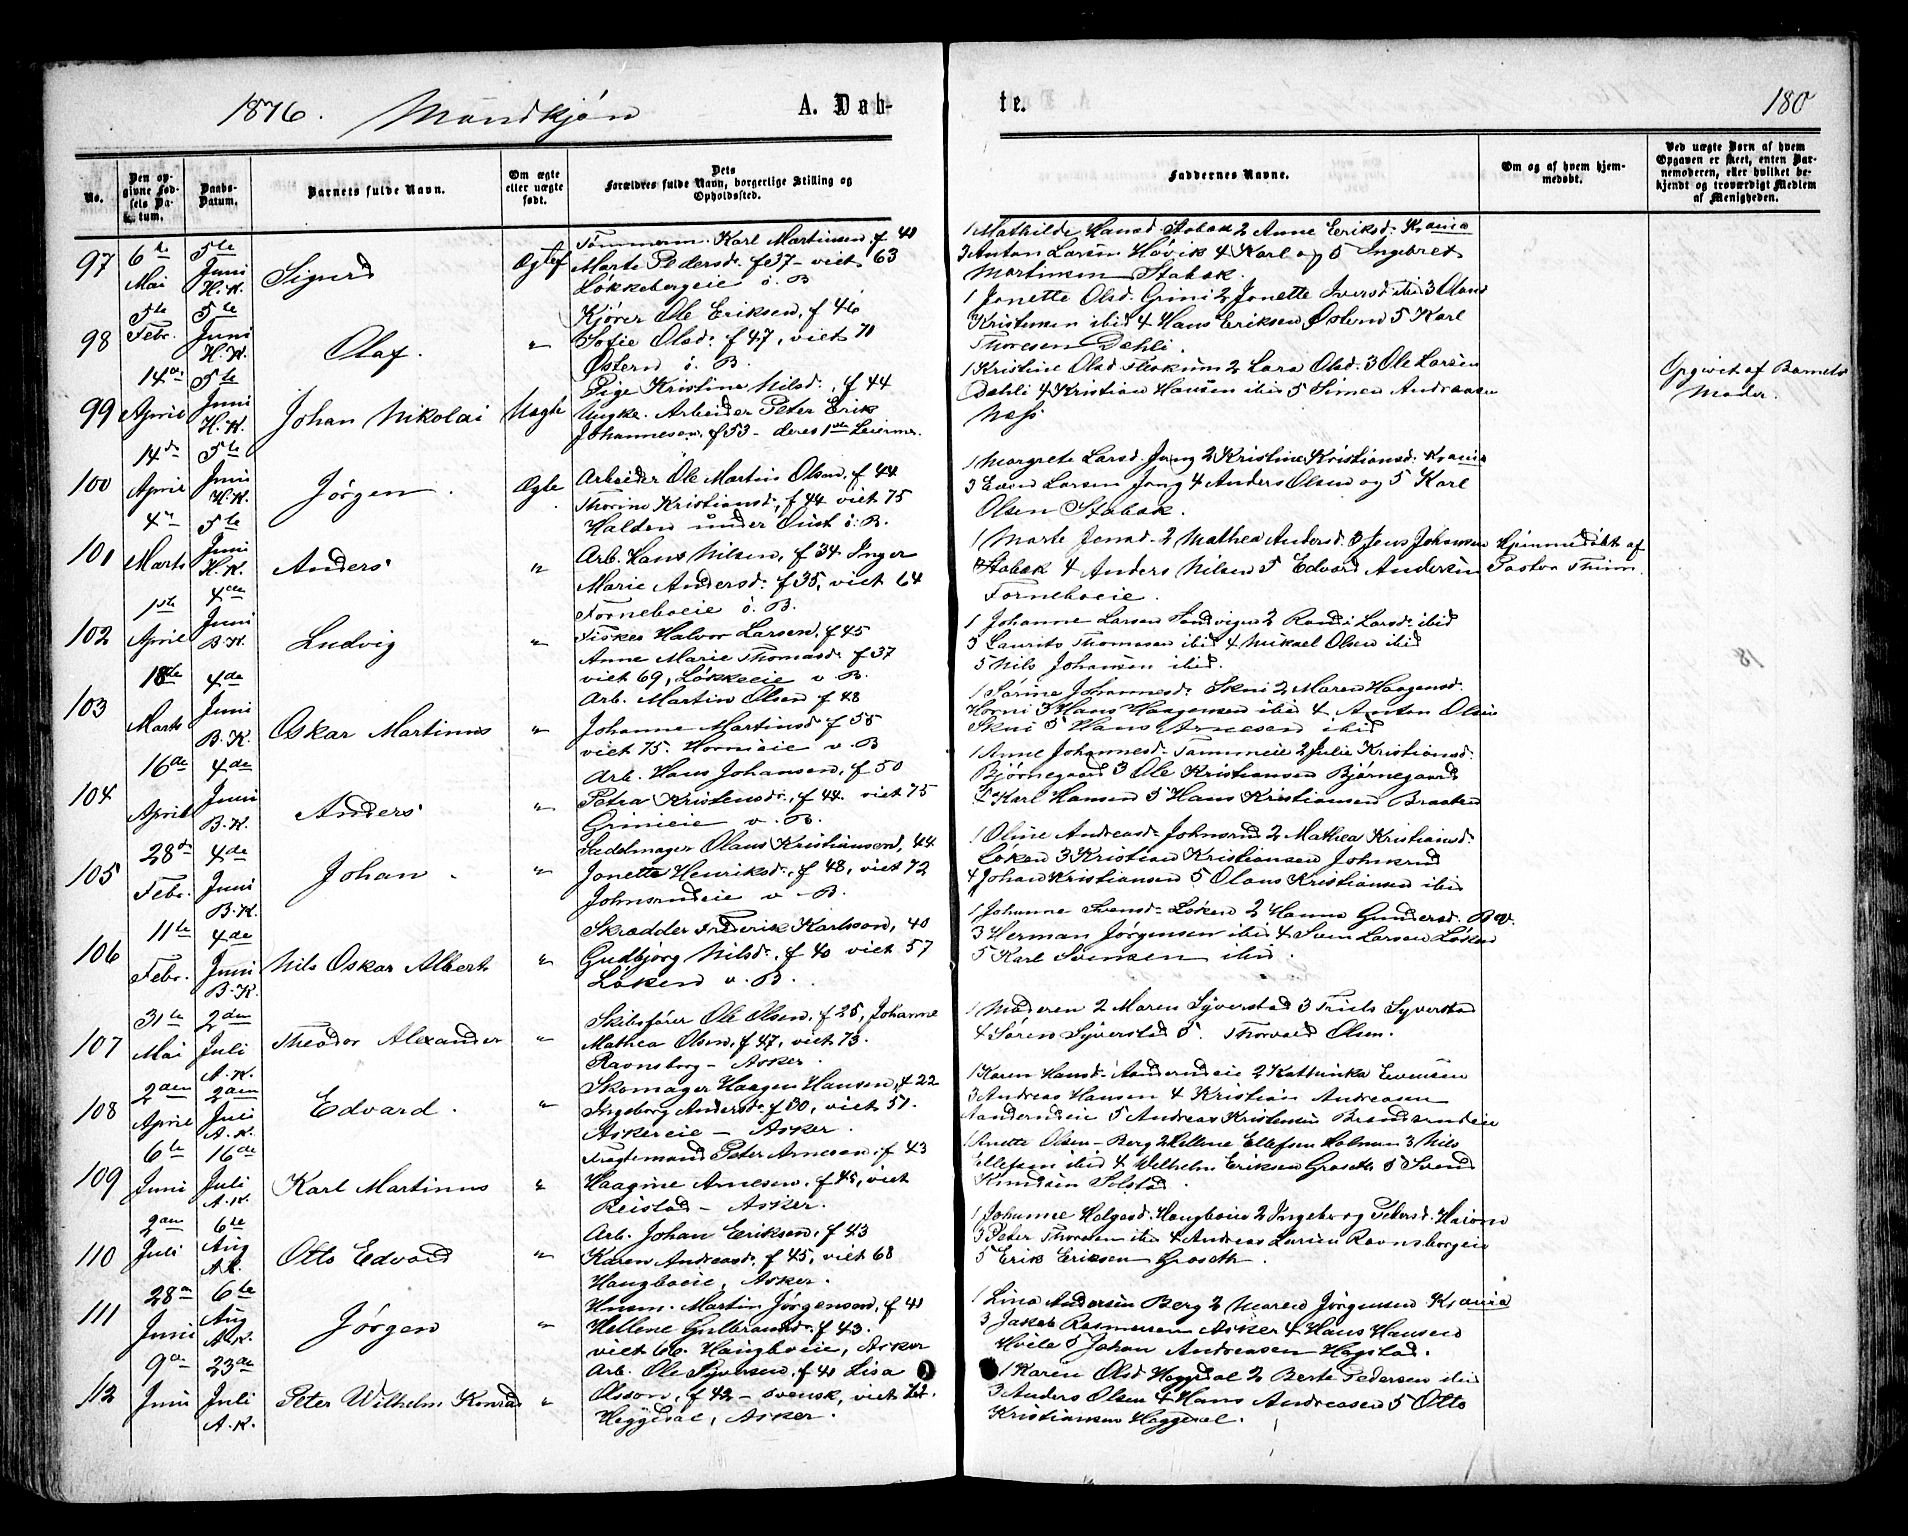 1876. Mandkjøn A. Dab-
te. 180
No.
Den op-
givne Fød-
sels Da-
tum.
Daabs-
Datum.
Barnets fulde Navn.
Om ægte
eller uægte
født.
Dets
Forældres fulde Navn, borgerlige Stilling og
Opholdssted.
Faddernes Navne.
Om og af hvem hjem-
medøbt.
Ved uægte Børn af hvem
Opgaven er skeet, enten Bar-
nemoderen, eller hvilket be-
kjendt og troværdigt Medlem
af Menigheden.
97 6te Mai 5te Juni H.K. Sigurd Ægtef
Tømmerm. Karl Martinsen, f 40
Marte Pedersd. f 37 - viet 63
Løkkebergeie ø. B
1 Mathilde Hansd Stabæk 2 Anne Eriksd. Krania
3 Anton Larsen Høvik 4 Karl og 5 Ingebret
Martinsen Stabæk.
98 5te Febr. 5te Juni H.K. Olaf. "
Kjører Ole Eriksen, f 46
Sofie Olsd. f 47, viet 71
Østern ø. B.
1 Jonette Olsd. Grini 2 Jonette Iversd ibid 3 Olaus
Kristensen ibid 4 Hans Eriksen Østern 5 Karl
Thoresen Dæhli.
99 14de April 5te Juni H.K. Johan Nikolai Uægte
Pige Kristine Nilsd., f 44
Ungk. Arbeider Peter Erik
Johannesen, f 53 - deres 1ste Leierm.
1 Kristine Olsd 2 Lara Olsd. 3 Ole Larsen
Dæhli 4 Kristian Hansen ibid 5 Simen Andreasen
Næss
Opgivet af Barnets
Moder.
100 14de April 5te Juni H.K. Jørgen. Ægte
Arbeider Ole Martin Olsen, f 44
Thorine Kristiansd., f 44 viet 75
Halden under Oust ø. B.
1 Margrete Larsd. Jong 2 Kristine Kristiansd. Krania
3 Even Larsen Jong 4 Anders Olsen og 5 Karl
Olsen Stabæk.
101 4de Marts 5te Juni H.K. Anders "
Arb. Hans Nilsen, f 34. Inger
Marie Andersd. f 35, viet 64
Forneboeie ø. B.
1 Marte Jonsd. 2 Mathea Andersd. 3 Jens Johansen
Stabæk 4 Anders Nilsen 5 Edvard Andersen
Forneboeie.
Hjemmedøbt af
Pastor Thim.
102 1ste April 4de Juni B.K. Ludvig "
Fisker Halvor Larsen, f 45
Anne Marie Thomasd. f 37
viet 69, Løkkeeie v. B
1 Johanne Larsen Sandvigen 2 Randi Larsd. ibid
3 Laurits Thomesen ibid 4 Mikael Olsen ibid
5 Nils Johansen ibid.
103 18de Marts 4de Juni B.K. Oskar Martinus "
Arb. Martin Olsen f 48
Johanne Martinsd f 55
viet 75. Hornieie v. B
1 Sørine Johannesd. Skui 2 Maren Haagensd.
Horni 3 Hans Haagensen ibid 4 Anton Olsen
Skui 5 Hans Arnesen ibid
104 16de April 4de Juni B.K. Anders "
Arb. Hans Johansen, f 50
Petra Kristensd., f 44. viet 75
Grinieie v. B.
1 Anne Johannesd. Tammeie 2 Julie Kristiansd.
Bjørnegaard 3 Ole Kristiansen Bjørnegaard
4 Karl Hansen 5 Hans Kristiansen Braaten
105 28de Febr. 4de Juni B.K. Johan "
Sadelmager Olaus Kristiansen, 44
Jonette Henriksd., f 48, viet 72
Johnsrudeie v. B.
1 Oline Andreasd. Johnsrud 2 Mathea Kristiansd.
Løken 3 Kristian Kristiansen Johnsrud
4 Johan Kristiansen 5 Olaus Kristiansen ibid
106 11te Febr. 4de Juni B.K. Nils Oskar Albert "
Skrædder Frederik Karlsson, 40
Gudbjørg Nilsd., f 40 viet 57
Løken v. B.
1 Johanne Svensd. Løken 2 Hanna Gundersd.
3 Herman Jørgensen ibid 4 Sven Larsen Løken
5 Karl Svensen ibid.
107 31te Mai 2den Juli A.K. Theodor Alexander "
Skibsfører Ole Olsen, f 25, Johanne
Mathea Olsen, f 47, viet 73.
Ravnsborg - Asker.
1 Moderen 2 Maren Syverstad 3 Friets Syverstad
4 Søren Syverstad 5. Thorvald Olsen.
108 2den April 2den Juli A.K. Edvard. "
Skomager Haagen Hansen, f 22
Ingeborg Andersd. f 30, viet 51.
Askereie - Asker.
1 Karen Hansd. 2 Kathinka Evensen
3 Andreas Hansen 4 Kristian Andreasen
5 Andreas Kristensen
109 6te Juni 16de Juli A.K. Karl Martinus "
Fragtemand Peter Arnesen, f 43
Haagine Arnesen, f 45, viet
Reistad - Asker.
1 Anette Olsen - Berg 2 Hellene Ellefsen Holman 3 Nils
Ellefsen ibid 4 Wilhelm Eriksen Groseth 5 Svend
Knudsen Solstad.
110 2den Juli 6te Aug A.K. Otto Edvard "
Arb. Johan Eriksen, f 43
Karen Andreasd. f 45, viet 68
Haugboeie, Asker.
1 Johanne Helgesd. Haugboeie 2 Ingeborg Petersd.
3 Peter Thoresen ibid 4 Andreas Larsen Ravnsborgeie
5 Erik Eriksen Groseth.
111 28de Juni 6te Aug A.K. Jørgen "
Husm. Martin Jørgensen, f 41
Hellene Gulbrandsd. f 43.
viet 66. Haugboeie, Asker
1 Lina Andersen Berg 2 Maren Jørgensen Krania
3 Jakob Rasmussen Asker 4 Hans Hansen
Hvile 5 Johan Andreasen Hogstad.
112 9de Juni 23de Juli A.K. Peter Wilhelm Konrad "
Arb. Ole Syversen, f 41 Lisa
Olsson, f 42 - svensk, viet
Heggedal, Asker.
1 Karen Olsd Heggedal 2 Berte Pedersen ibid
3 Anders Olsen 4 Hans Andreasen 5 Otto
Kristiansen Heggedal.